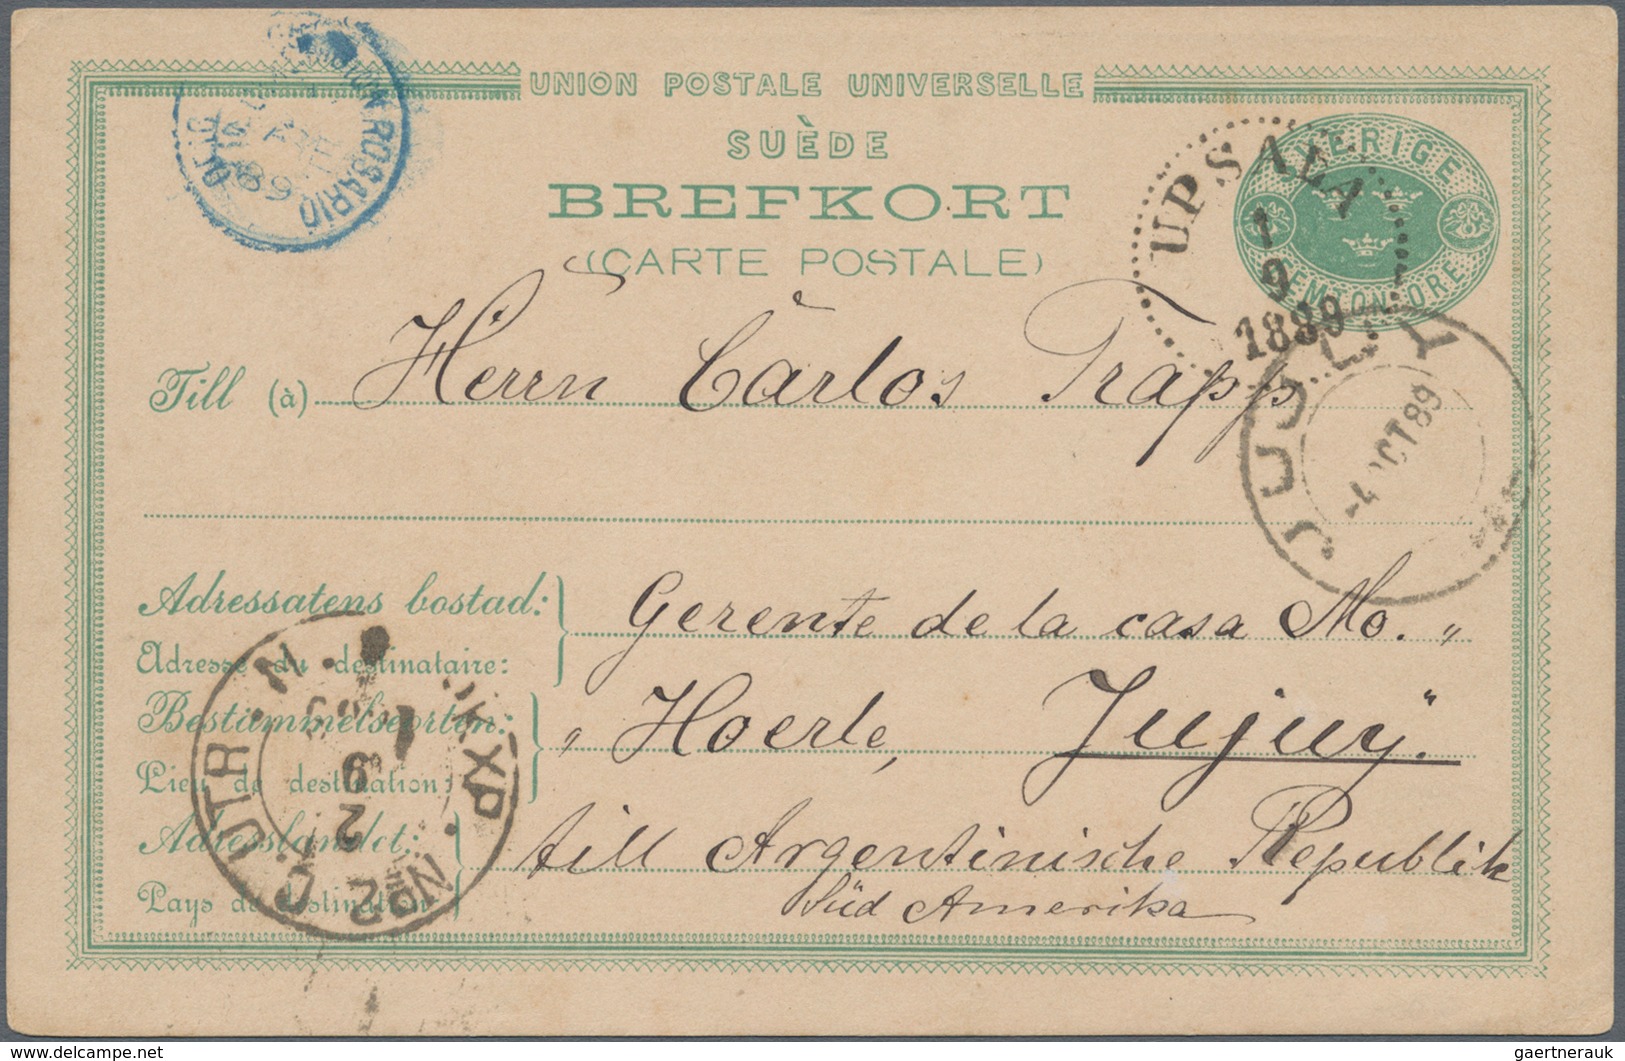 UNION POSTALE UNIVERSELLE
SUÈDE
BREFKORT
(CARTE POSTALE)
SVERIGE
FEMTON ÖRE
UPSALA
1
9
1889
ROSARIO
89
Till (à) Herrn Carlos Trapp
JUJUY
-4 OCT 89
Adressatens bostad:
Adresse du destinataire:
Gerente de la casa Mo. „
Bestämmelseorten:
Lieu de destination:
„ Hoerle, Jujuy."
Adresslandet:
Pays de destination:
till Argentinische Republik
Süd Amerika
PKXP. Nº 2. C. UTR N.
2
9
delcampe.net
gaertnerauk